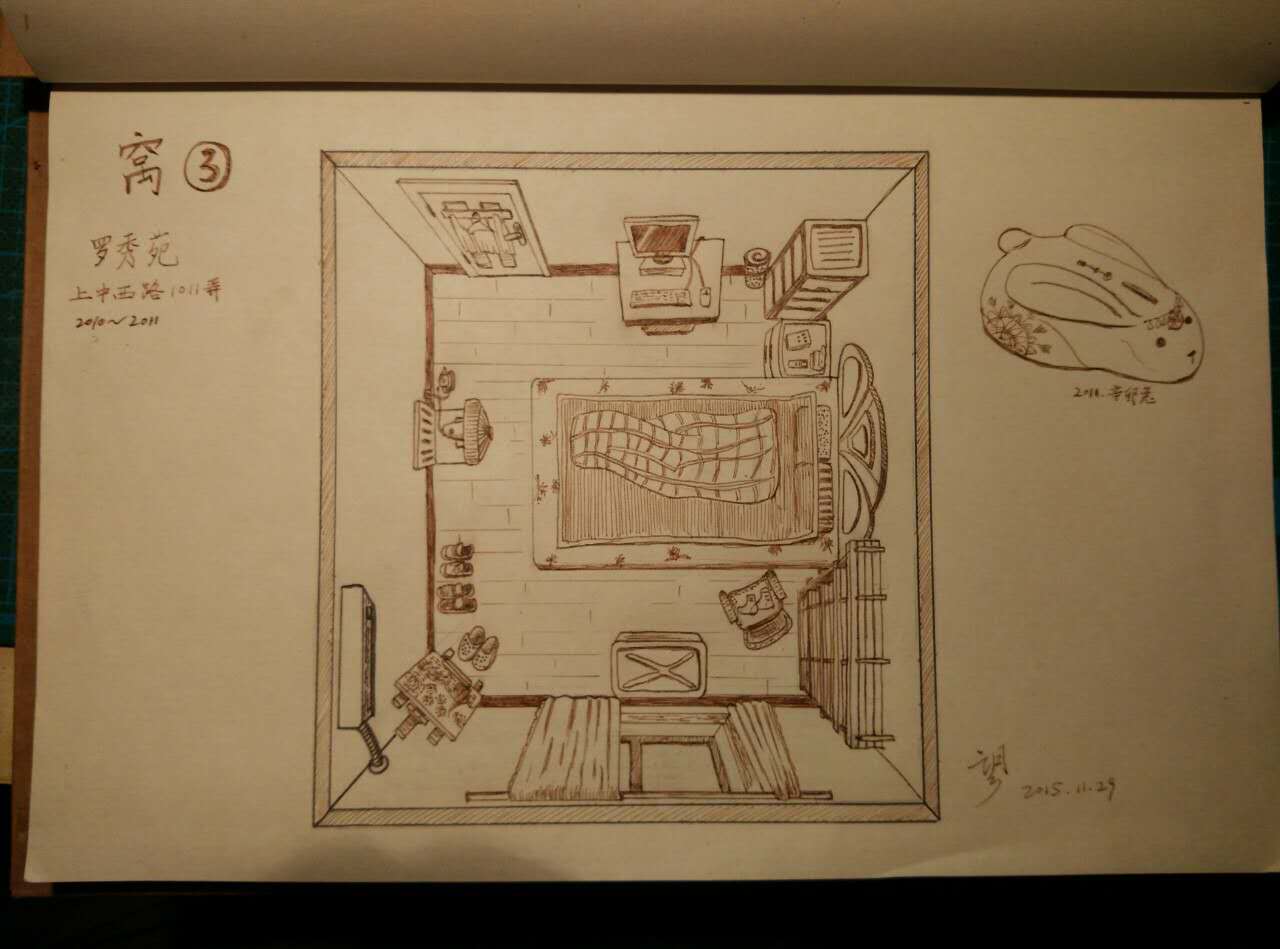 窝 ③
罗秀苑
上中西路1011弄
2010~2011
2011.辛卯兔
望
2015.11.29